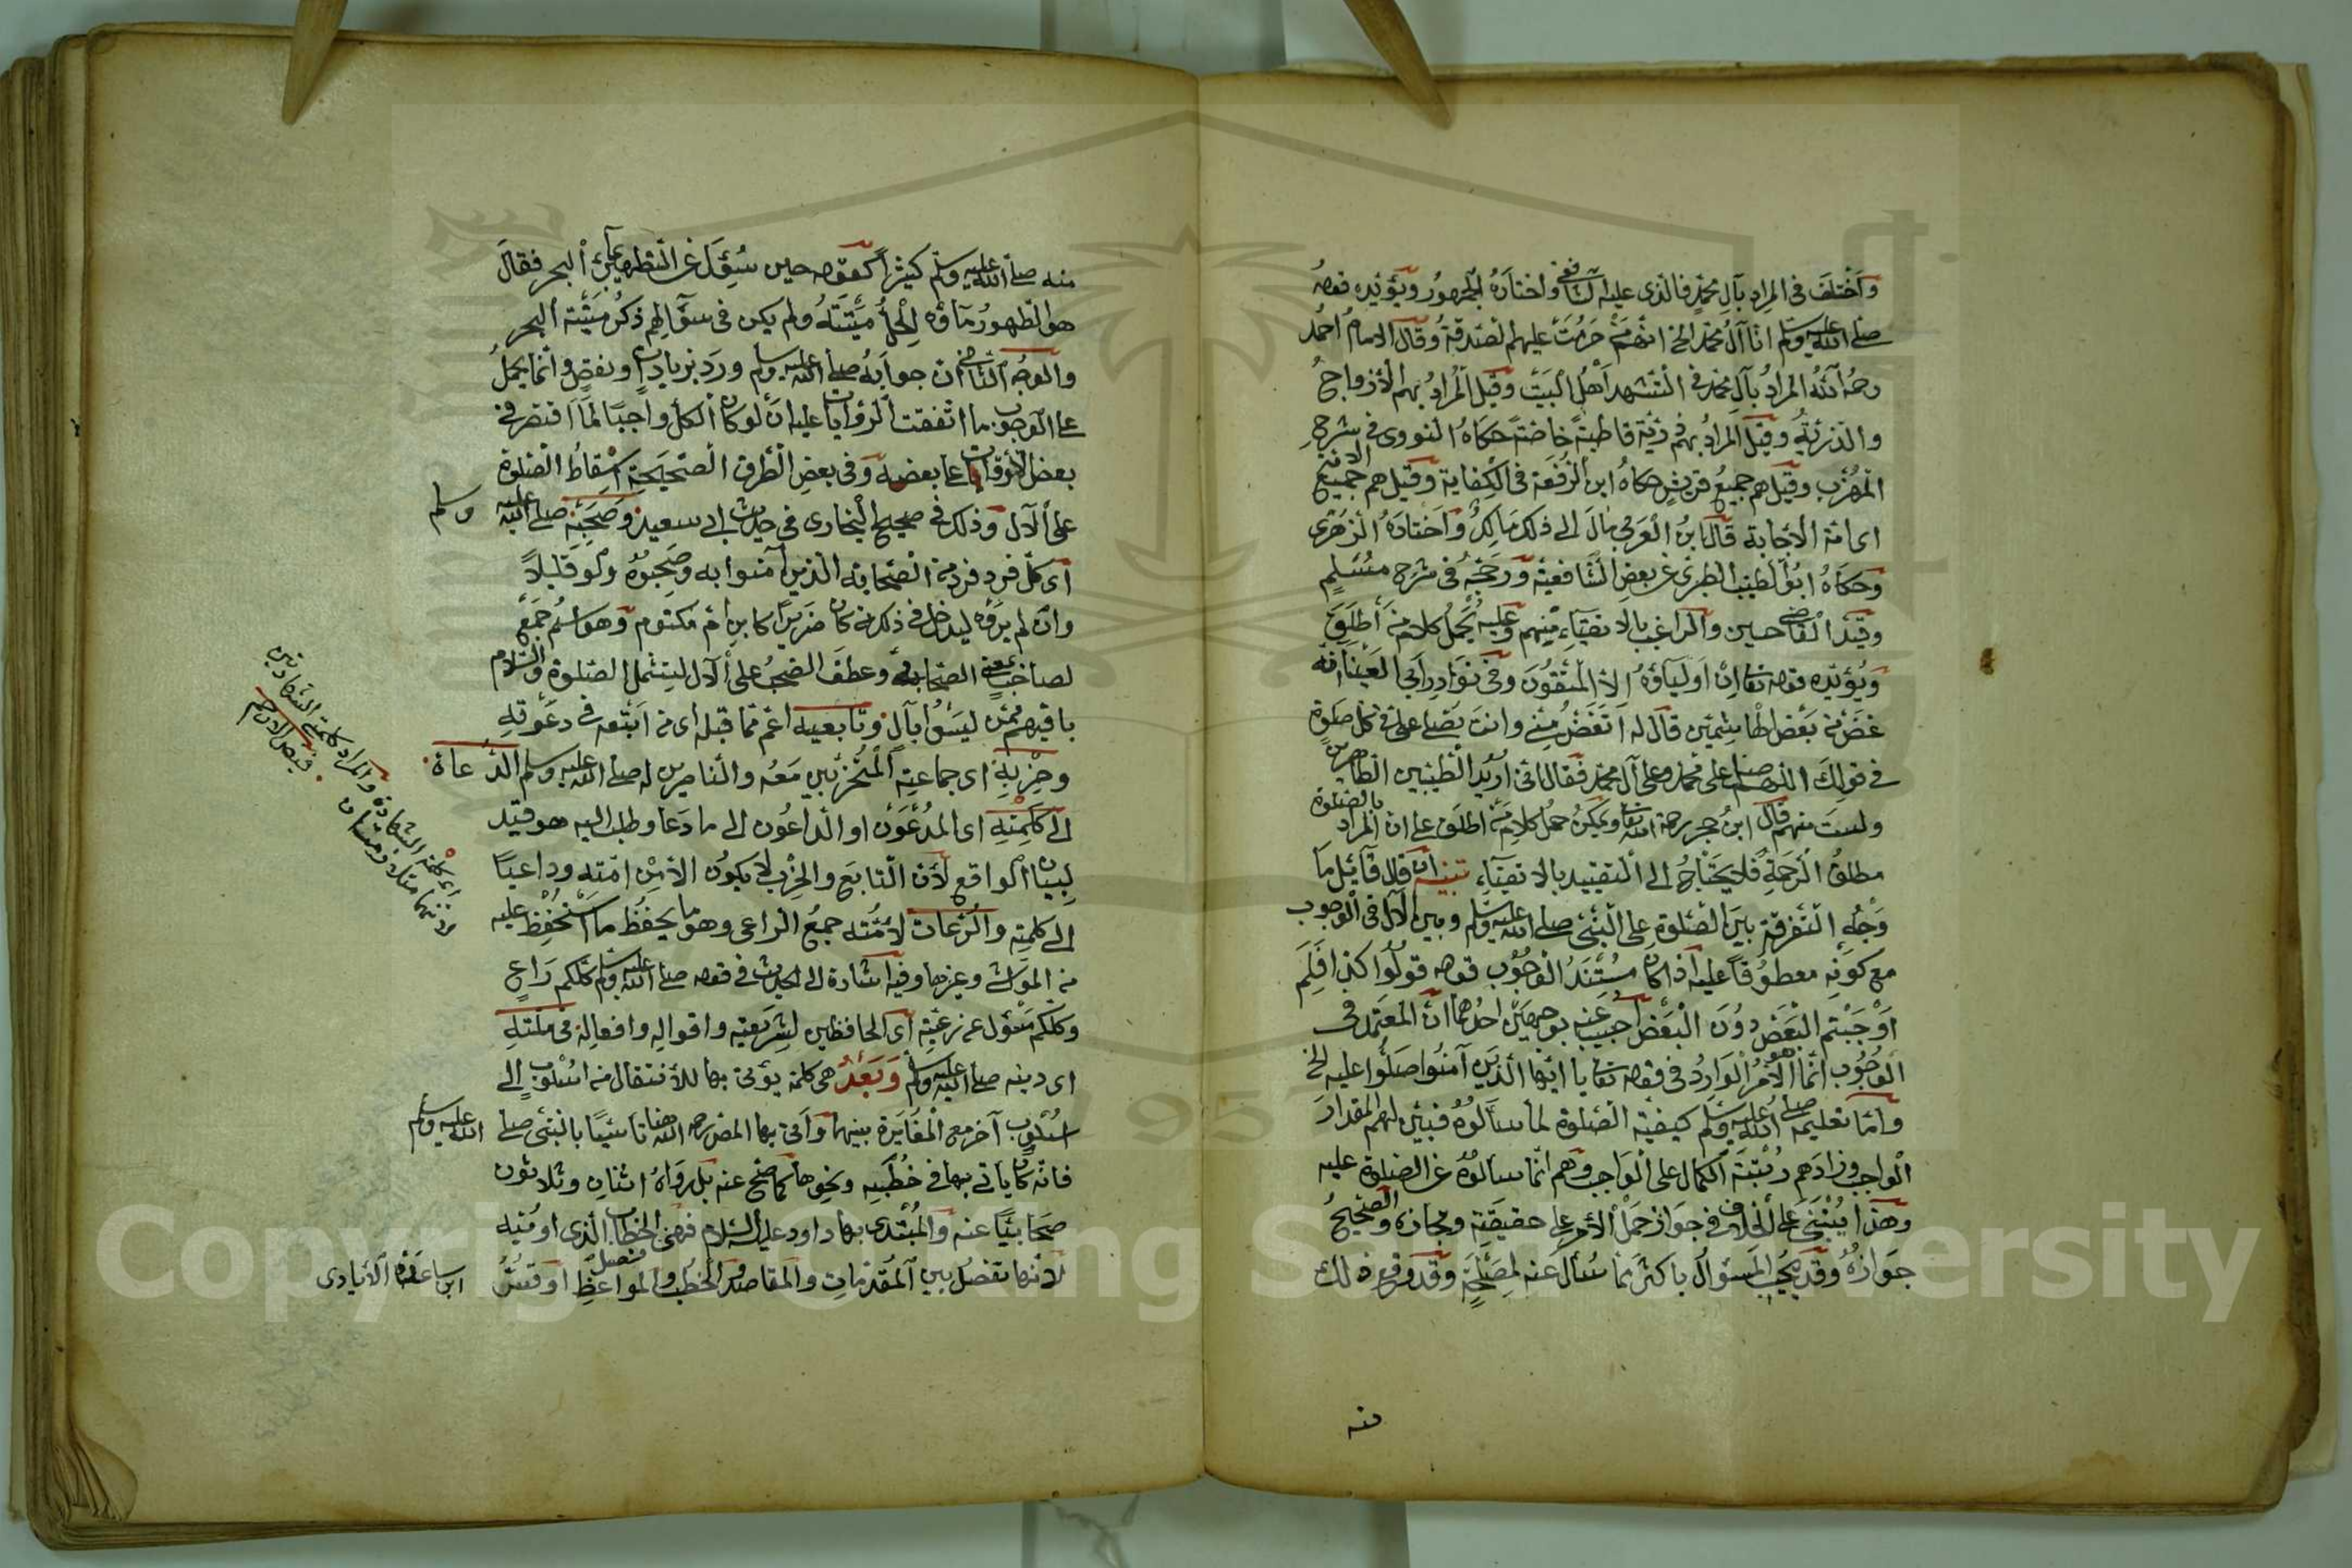 واختلف في المراد بآل محمد فالذي عليه الشافعي واختاره الجمهور ويؤيده قوله
صلى الله عليه وسلم انا آل محمد الخ انهم من حرمت عليهم الصدقة وقال الامام احمد
رحمه الله المراد بآل محمد في التشهد اهل البيت وقيل المراد بهم الازواج
والذرية وقيل المراد بهم ذرية فاطمة خاصة حكاه النووي في شرح
المهذب وقيل هم جميع قريش حكاه ابن الرفعة في الكفاية وقيل هم جميع الامة
اى امة الاجابة قال ابن العربي مال الى ذلك مالك واختاره الزهري
وحكاه ابو الطيب الطبري عن بعض الشافعية ورجحه في شرح مسلم
وقيد القاضي حسين والراغب بالاتقياء منهم وعليه يحمل كلام من اطلق
ويؤيده قوله تعالى ان اولياؤه الا المتقون وفي نوادر ابي العيناء انه
غض منه بعض الهاشميين قال له اتغض مني وانت تصلي علي في كل صلوة
في قولك اللهم صل على محمد وعلى آل محمد فقال اني اريد الطيبين الطاهرين
ولست منهم قال ابن حجر رحمه الله تعالى ويمكن حمل كلام من اطلق على ان المراد بالصلوة
مطلق الرحمة فلا يحتاج الى التقييد بالاتقياء تنبيه ان قال قائل ما
وجه التفرقة بين الصلوة على النبي صلى الله عليه وسلم وبين الآل في الوجوب
مع كونه معطوفا عليه اذ كان مستند الوجوب قوله قولوا كذا فلم
اوجبتم البعض دون البعض اجيب عنه بوجهين احدهما ان المعتمد في
الوجوب انما الامر الوارد في قوله تعالى يا ايها الذين آمنوا صلوا عليه الخ
واما تعليمه صلى الله عليه وسلم كيفية الصلوة لما سألوه فبين لهم المقدار
الواجب وزادهم رتبة الكمال على الواجب وهم انما سالوه عن الصلوة عليه
وهذا ينبني على الخلاف في جواز حمل الأمر على حقيقته ومجازه والصحيح
جوازه وقد يجيب المسؤال باكثر مما سئال عنه لمصلحة وقد وقع ذلك
منه
منه صلى الله عليه وسلم كثيرا كقوله حين سئل عن التطهير بماء البحر فقال
هو الطهور ماؤه الحل ميتته ولم يكن في سؤالهم ذكر ميتة البحر
والوجه الثاني ان جوابه صلى الله عليه وسلم ورد بزيادات ونقص وانما يحمل
على الوجوب ما اتفقت الروايات عليه ان لو كان الكل واجبا لما اقتصر في
بعض الاوقات على بعضه وفي بعض الطرق الصحيحة اسقاط الصلوة
على الآل وذلك في صحيح البخاري في حديث ابي سعيد وصحبه صلى الله عليه وسلم
اى كل فرد فرد من الصحابة الذين آمنوا به وصحبوه ولو قليلا
وان لم يروه ليدخل في ذكر من كان ضريرا كابن ام مكتوم وهو اسم جمع
لصاحب بمعنى الصحابة وعطف الصحب على الآل ليشمل الصلوة والسلام
باقيهم ممن ليسوا بآل وتابعيه اعم مما قبله اى من اتبعه في دعوته
وحزبه اى جماعته المتحزبين معه والناصرين له صلى الله عليه وسلم الدعاة
الى كلمته اى المدعون او الداعون الى ما دعا وطلب اليه هو قيد
لبيان الواقع لأن التابع والحزب لا يكون الا من امته وداعيا
الى كلمته والرعات لامته جمع الراعي وهو ما يحفظ ما استحفظ عليه
من المواشى وغيرها وفيه اشارة الى الحديث في قوله صلى الله عليه وسلم كلكم راع
وكلكم مسؤل عن رعيته اى الحافظين لشريعته واقواله وافعاله في ملته
اى دينه صلى الله عليه وسلم وبعد هى كلمة يؤتى بها للانتقال من اسلوب الى
اسلوب آخر مع المغايرة بينهما واتى بها المص رحمه الله هنا تأسيا بالنبي صلى الله عليه وسلم
فانه كان ياتى بها في خطبه ونحوها كما صح عنه بل رواه اثنان وثلاثون
صحابيا عنه والمبتدى بها داود عليه السلام فهى فصل الخطاب الذى اوتيه
لأنها تفصل بين المقدمات والمقاصد والخطب والمواعظ او قس ابن ساعدة الايادى
اى كلمة الشهادة والمراد كلمتى الشهادتين